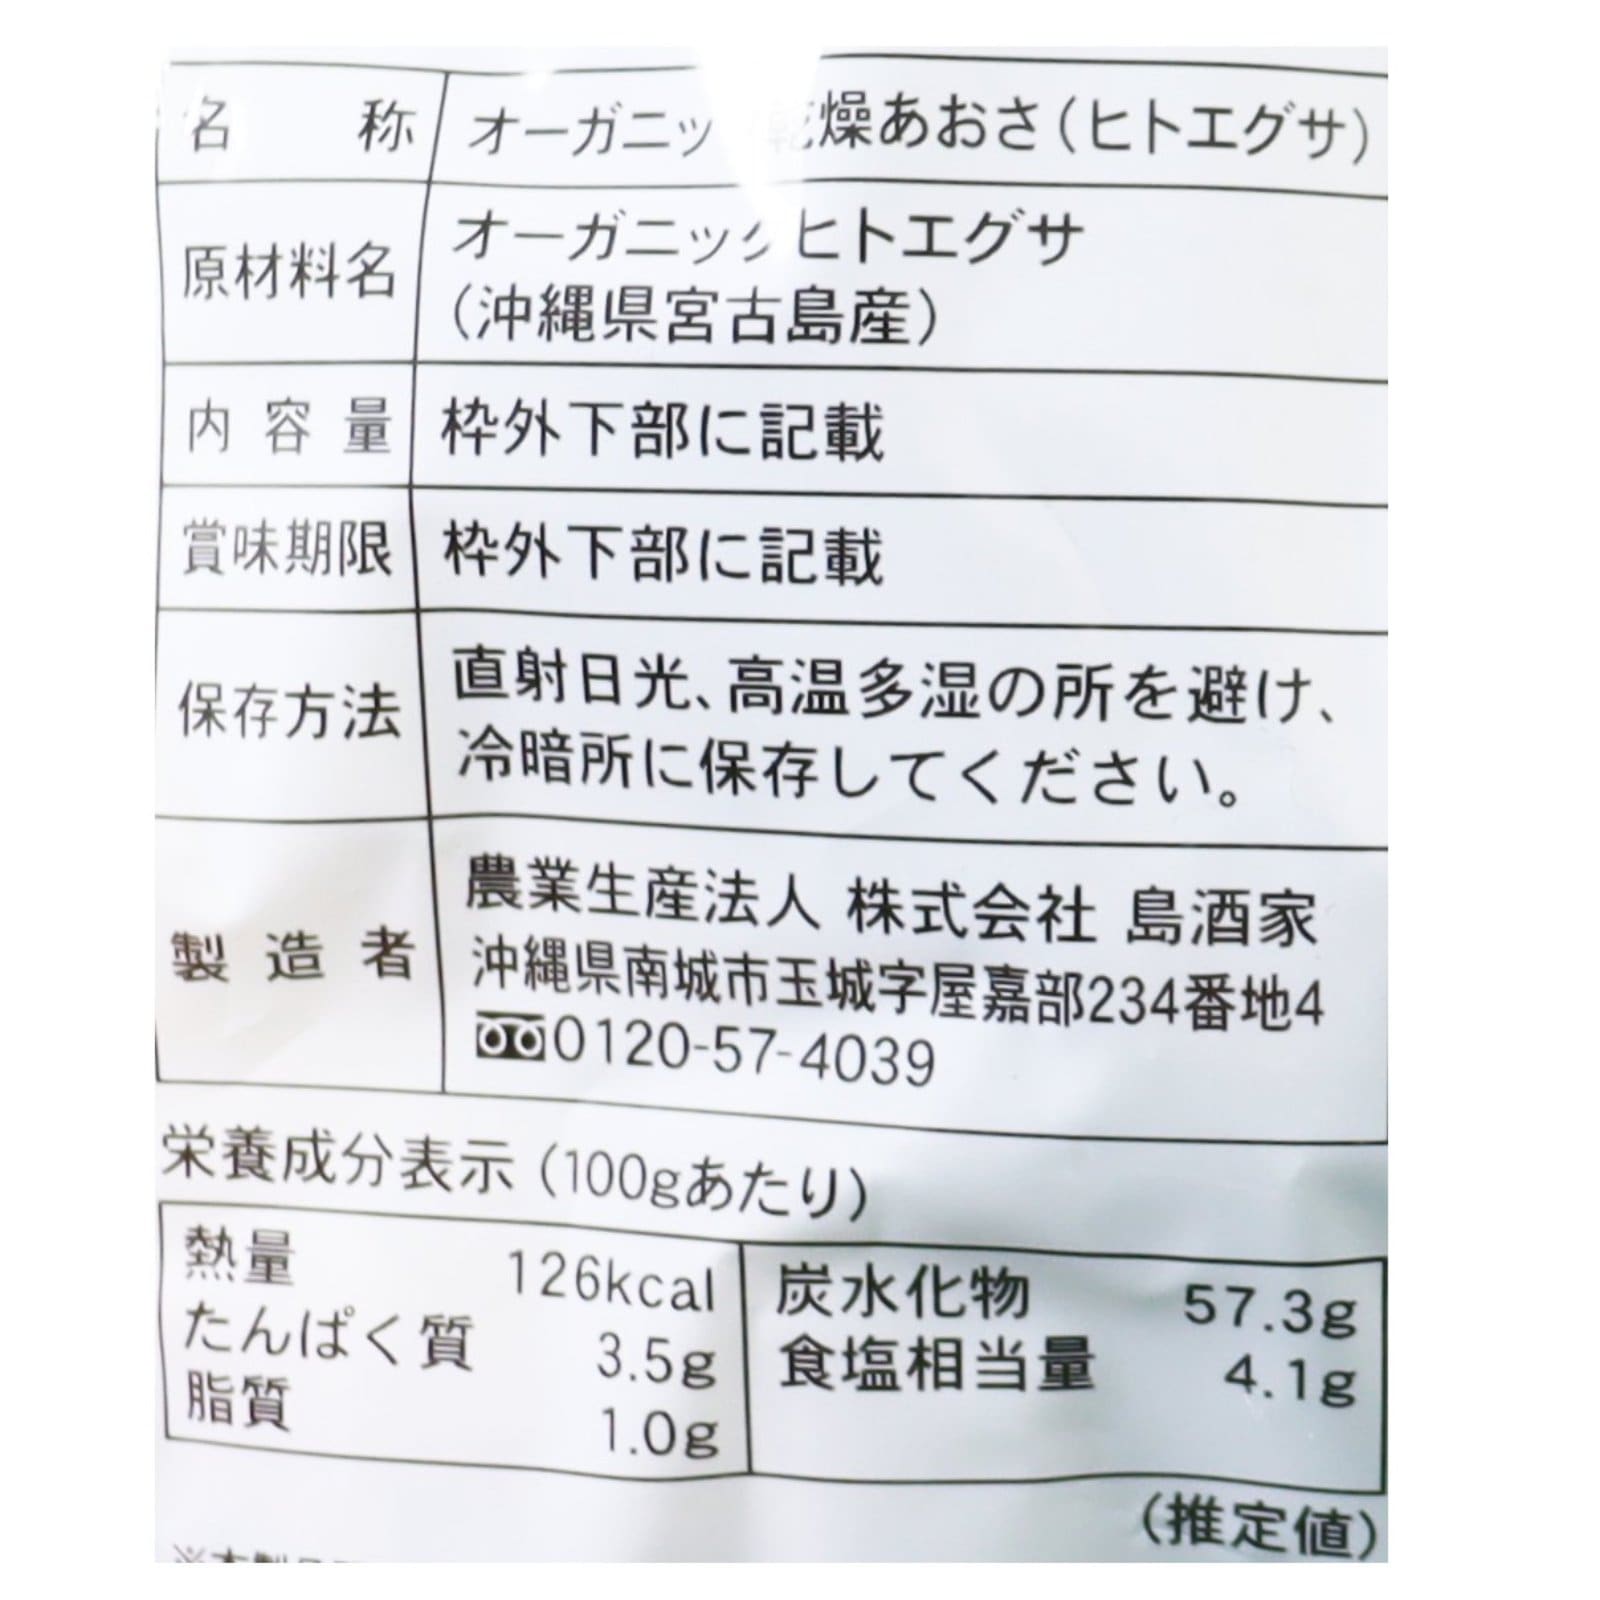 名称 オーガニック乾燥あおさ(ヒトエグサ)
原材料名 オーガニックヒトエグサ
(沖縄県宮古島産)
内容量 枠外下部に記載
賞味期限 枠外下部に記載
保存方法 直射日光、高温多湿の所を避け、
冷暗所に保存してください。
製造者 農業生産法人 株式会社 島酒家
沖縄県南城市玉城字屋嘉部234番地4
0120-57-4039
栄養成分表示(100gあたり)
熱量 126kcal
たんぱく質 3.5g
脂質 1.0g
炭水化物 57.3g
食塩相当量 4.1g
(推定値)